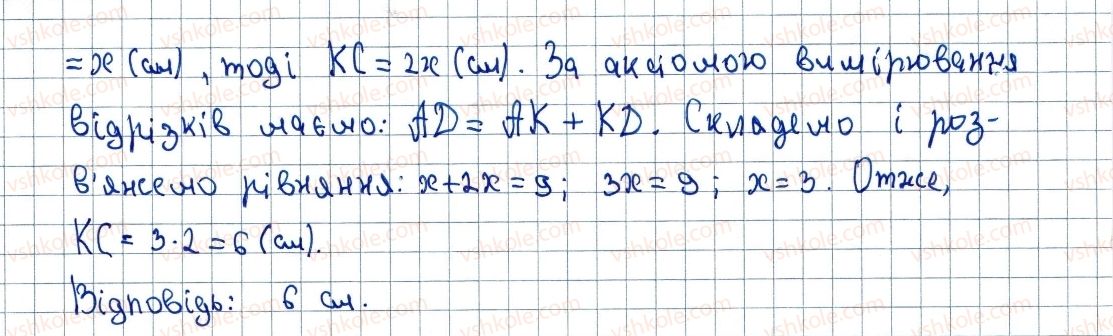 = x (см), тоді KC = 2x (см). За аксіомою вимірювання
відрізків маємо: AD = AK + KD. Складемо і роз-
в'яжемо рівняння: x + 2x = 9; 3x = 9; x = 3. Отже,
KC = 3 · 2 = 6 (см).
Відповідь: 6 см.